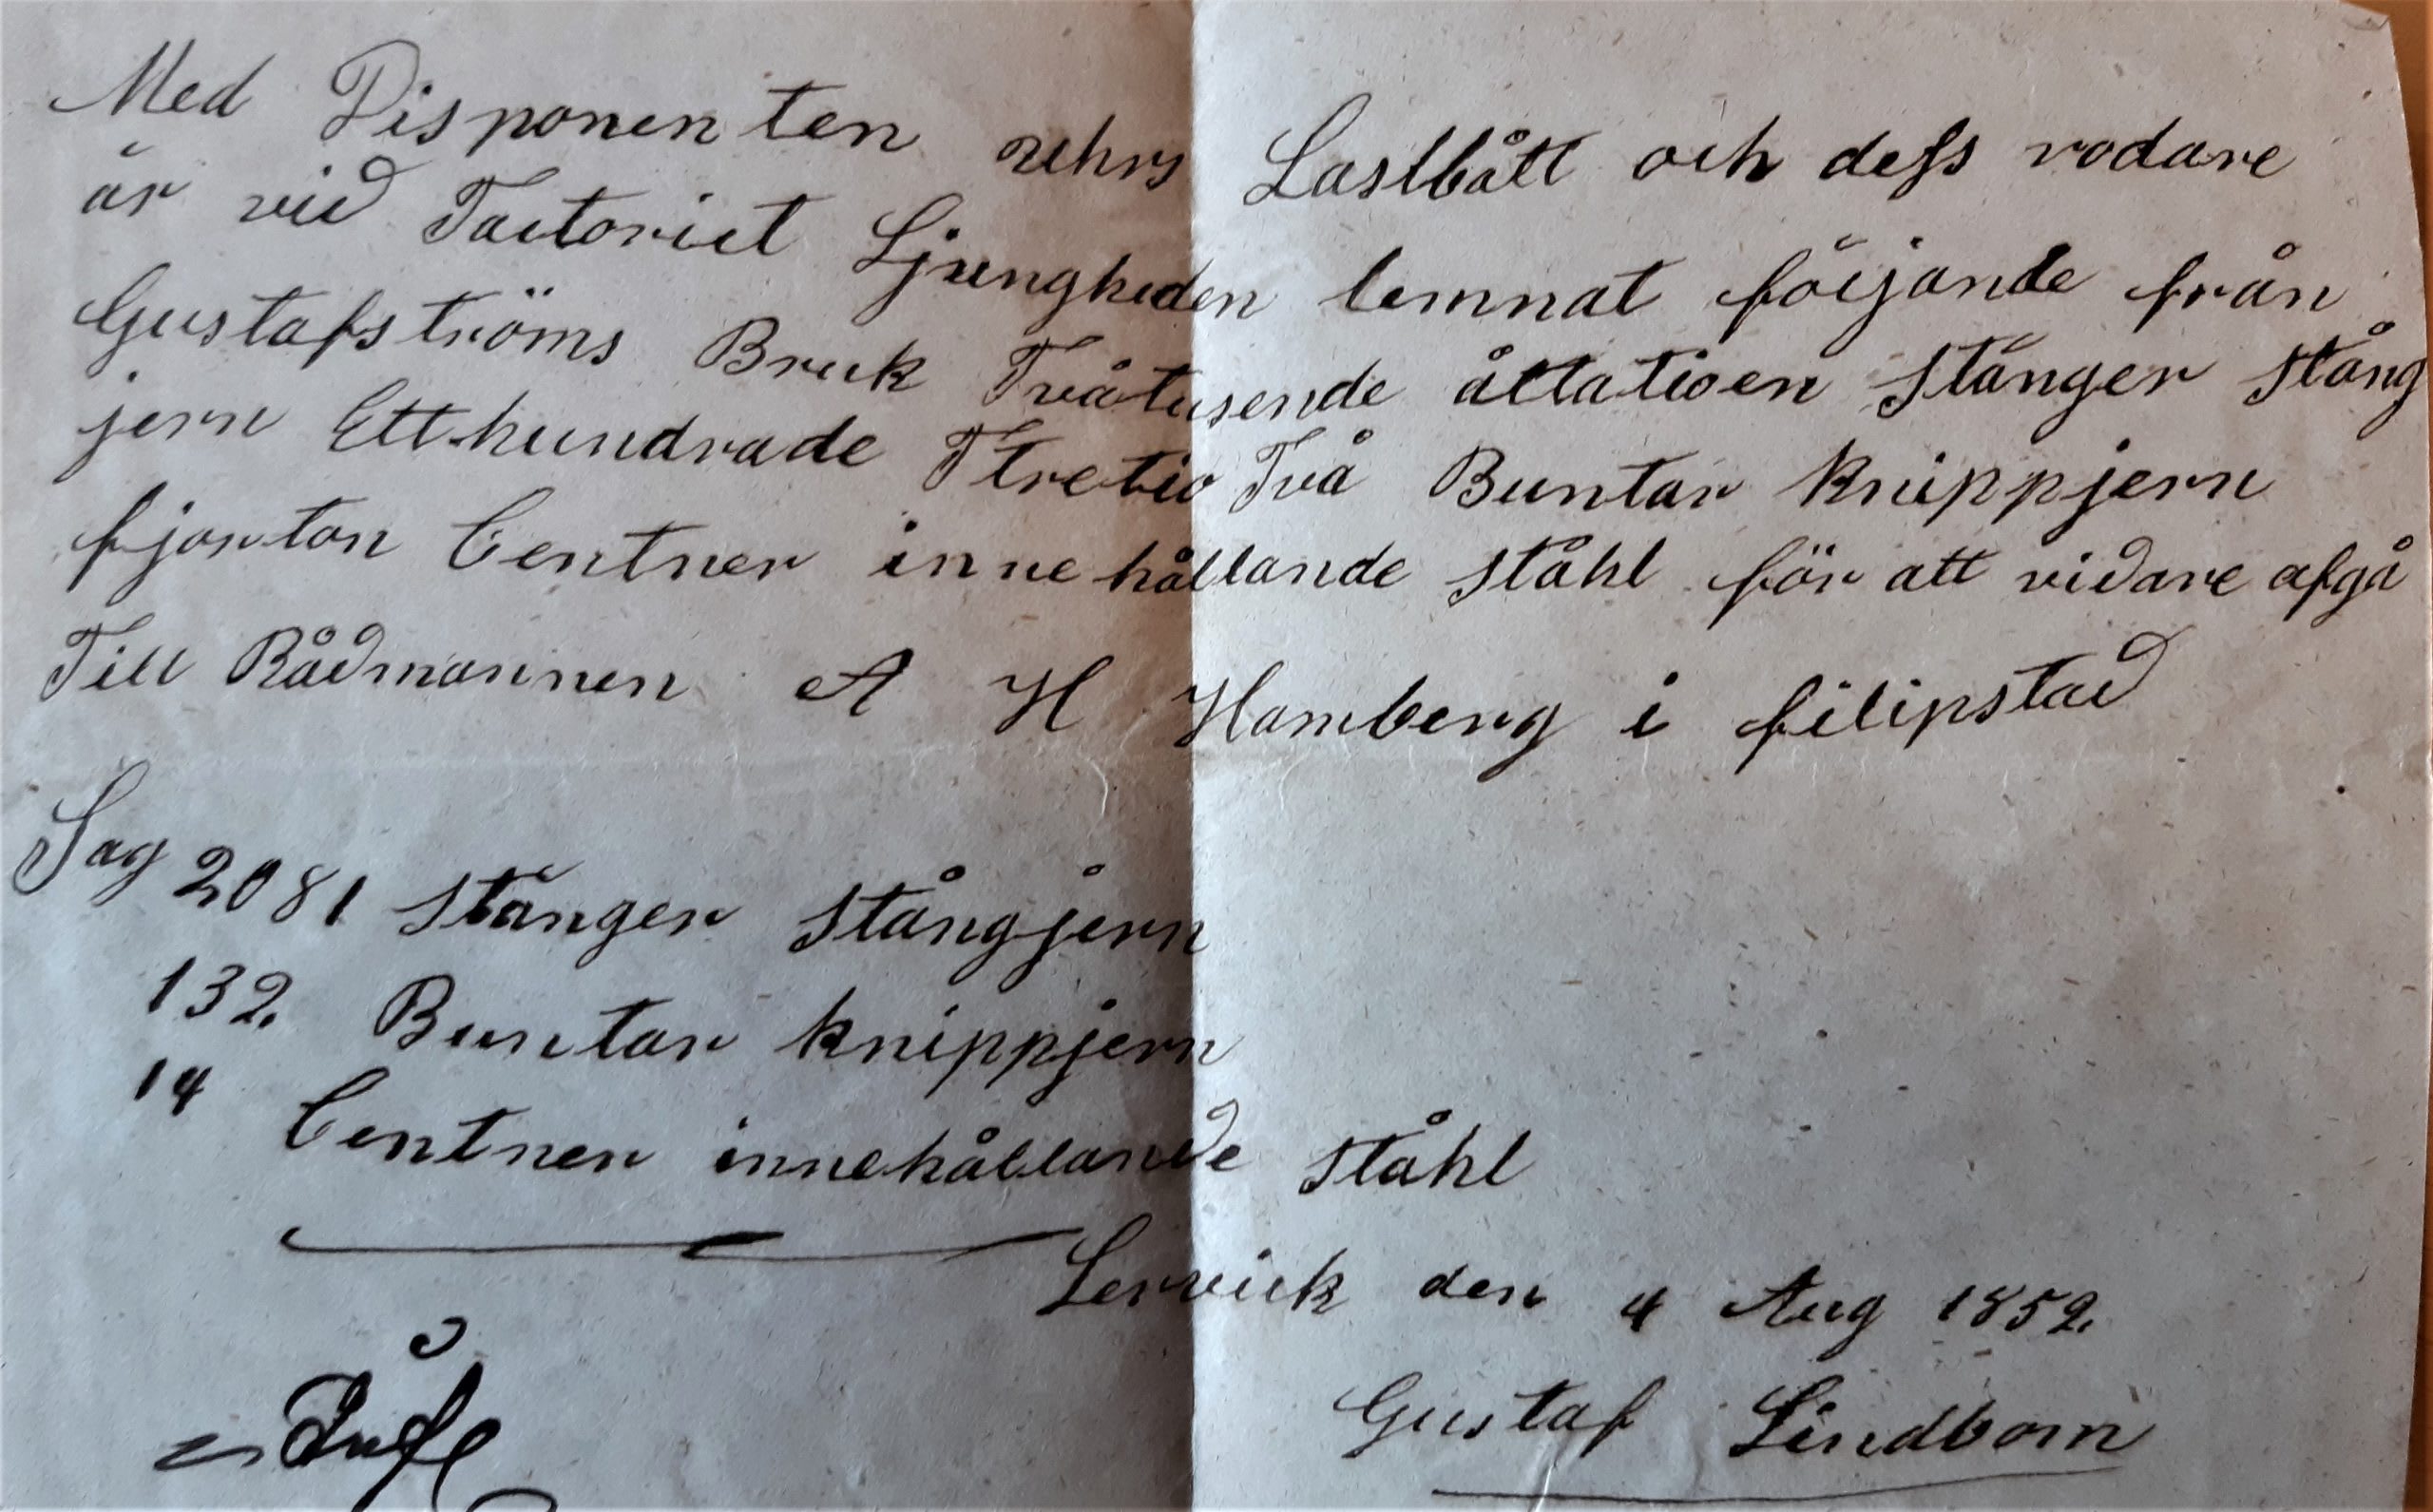 Med Disponenten uhrs Lastbått och dess rodare
är vid Factoriet Ljungheden lemnat följande från
Gustafströms Bruk Tvåtusende åttatioen Stänger Stång
jern Etthundrade Ttretio Två Buntar knippjern
fjorton Centner innehållande ståhl för att vidare afgå
Till Rådmannen A H Hamberg i filipstad
Sag 2081 Stänger Stångjern
132. Buntar knippjern
14 Centner innehållande ståhl
Lervick den 4 Aug 1852.
Gustaf Lindbom